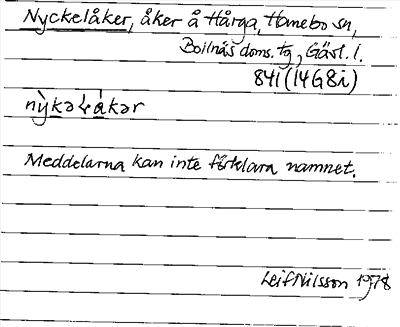 Nyckelåker, åker å Hårga, Hanebo sn,
Bollnäs doms. tg, Gävl. l.
841 (14G8i)
nỳkəLákər
Meddelarna kan inte förklara namnet.
Leif Nilsson 1978